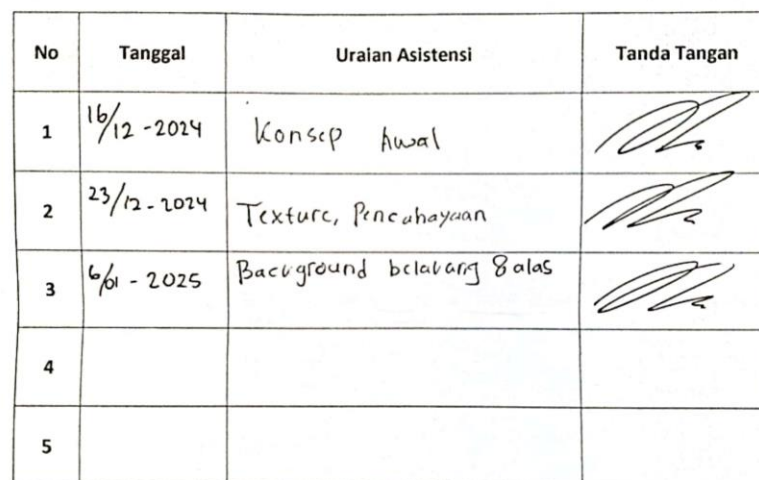 No Tanggal Uraian Asistensi Tanda Tangan
1 16/12 - 2024 Konsep Awal
2 23/12 - 2024 Texture, Pencahayaan
3 6/01 - 2025 Background belakang & alas
4
5